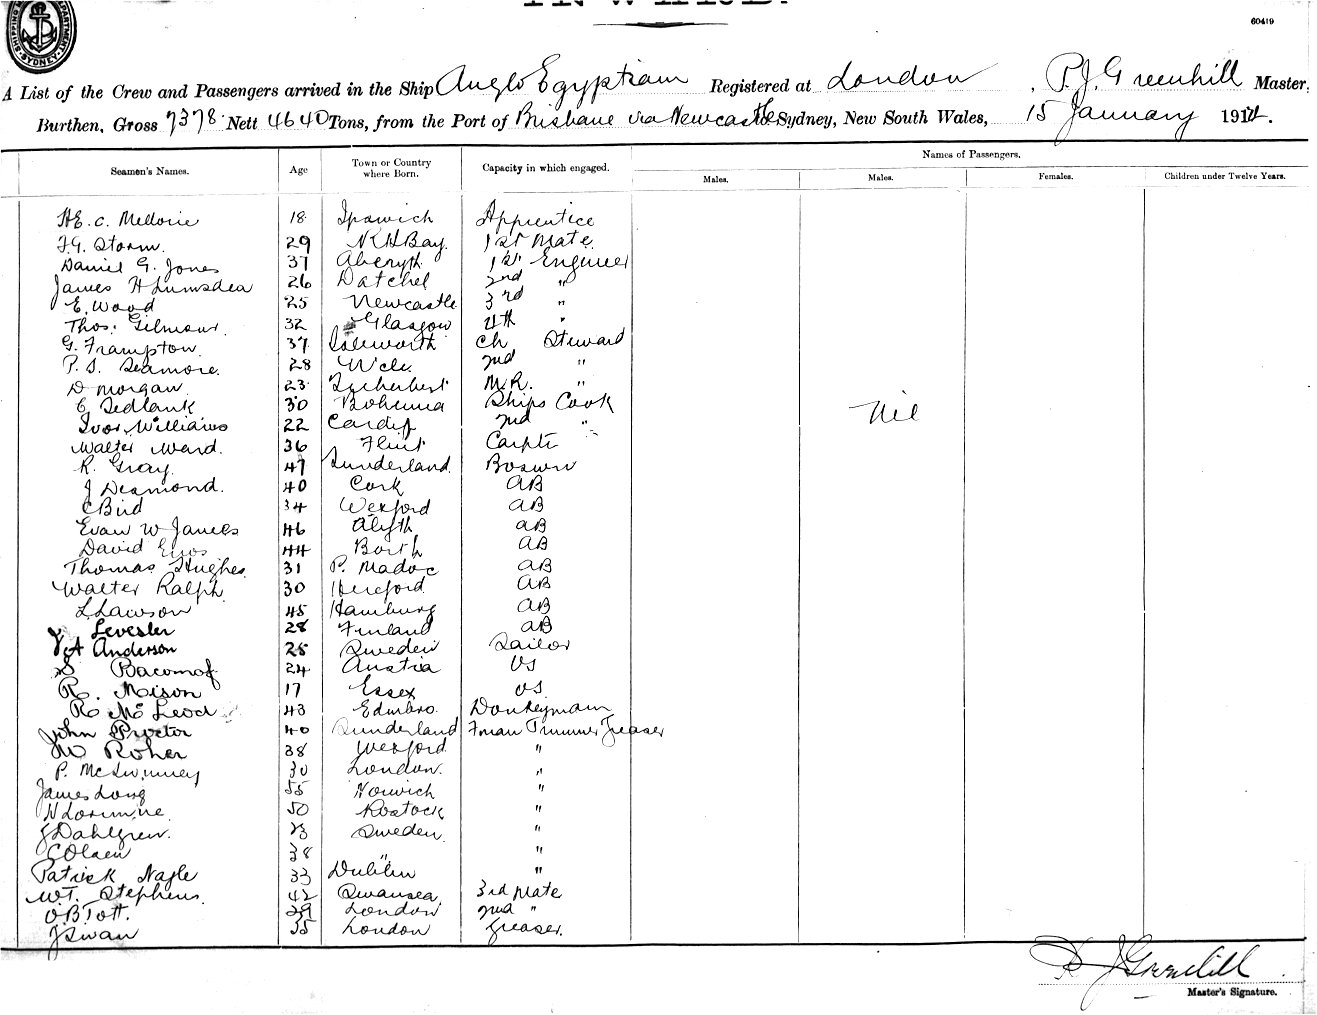 INWARD.
60419
SHIPPING DEPARTMENT SYDNEY
A List of the Crew and Passengers arrived in the Ship Anglo Egyptian Registered at London, P.J. Greenhill Master,
Burthen, Gross 7378 Nett 4640 Tons, from the Port of Brisbane via Newcastle Sydney, New South Wales, 15 January 191
Seamen's Names. Age Town or Country where Born. Capacity in which engaged. Names of Passengers.
Males. Males. Females. Children under Twelve Years.
H.E.C. Mellorie 18 Ipswich Apprentice
F.G. Storm. 29 N R H Bay. 1st Mate.
Daniel G. Jones 37 Aberyth 1st Engineer
James H Lumsdea 26 Datchel 2nd "
E. Wood 25 Newcastle 3rd "
Thos. Gilmour. 32 Glasgow 4th "
G. Frampton. 37 Isleworth Ch Steward
P. S. Seamore. 28 2nd "
D Morgan 23 M.R. "
C Sedlank 30 Bohemia Ships Cook
Nil
Ivor Williams 22 Cardiff 2nd "
Walter Ward. 36 Flint Carptr
R. Gray. 47 Sunderland Boswn
J Desmond. 40 Cork AB
C Bird 34 Wexford AB
Evan W James 46 Alyth AB
David Enos 44 Borth AB
Thomas Hughes 31 P. Madoc AB
Walter Ralph 30 Hereford AB
L Lawson 45 Hamburg AB
Levesler 28 Finland AB
A Anderson 25 Sweden Sailor
S Bacomof 24 Austia OS
R. Mison 17 Essex OS
R McLeod 43 Edinbro. Donkeyman
John Proctor 40 Sunderland Fman Trimmer Greaser
M Roher 38 Wexford "
P. McSwinney 30 London. "
James Long 55 Norwich "
N Lorimine 50 Rostock "
J Dahlgren. 23 Sweden "
C Olsen 38 " "
Patrick Nagle 33 Dublin "
W.T. Stephens. 42 Swansea 3rd Mate
O.B. Tott. 29 London 2nd "
J Swan 35 London Greaser.
P J Greenhill
Master's Signature.